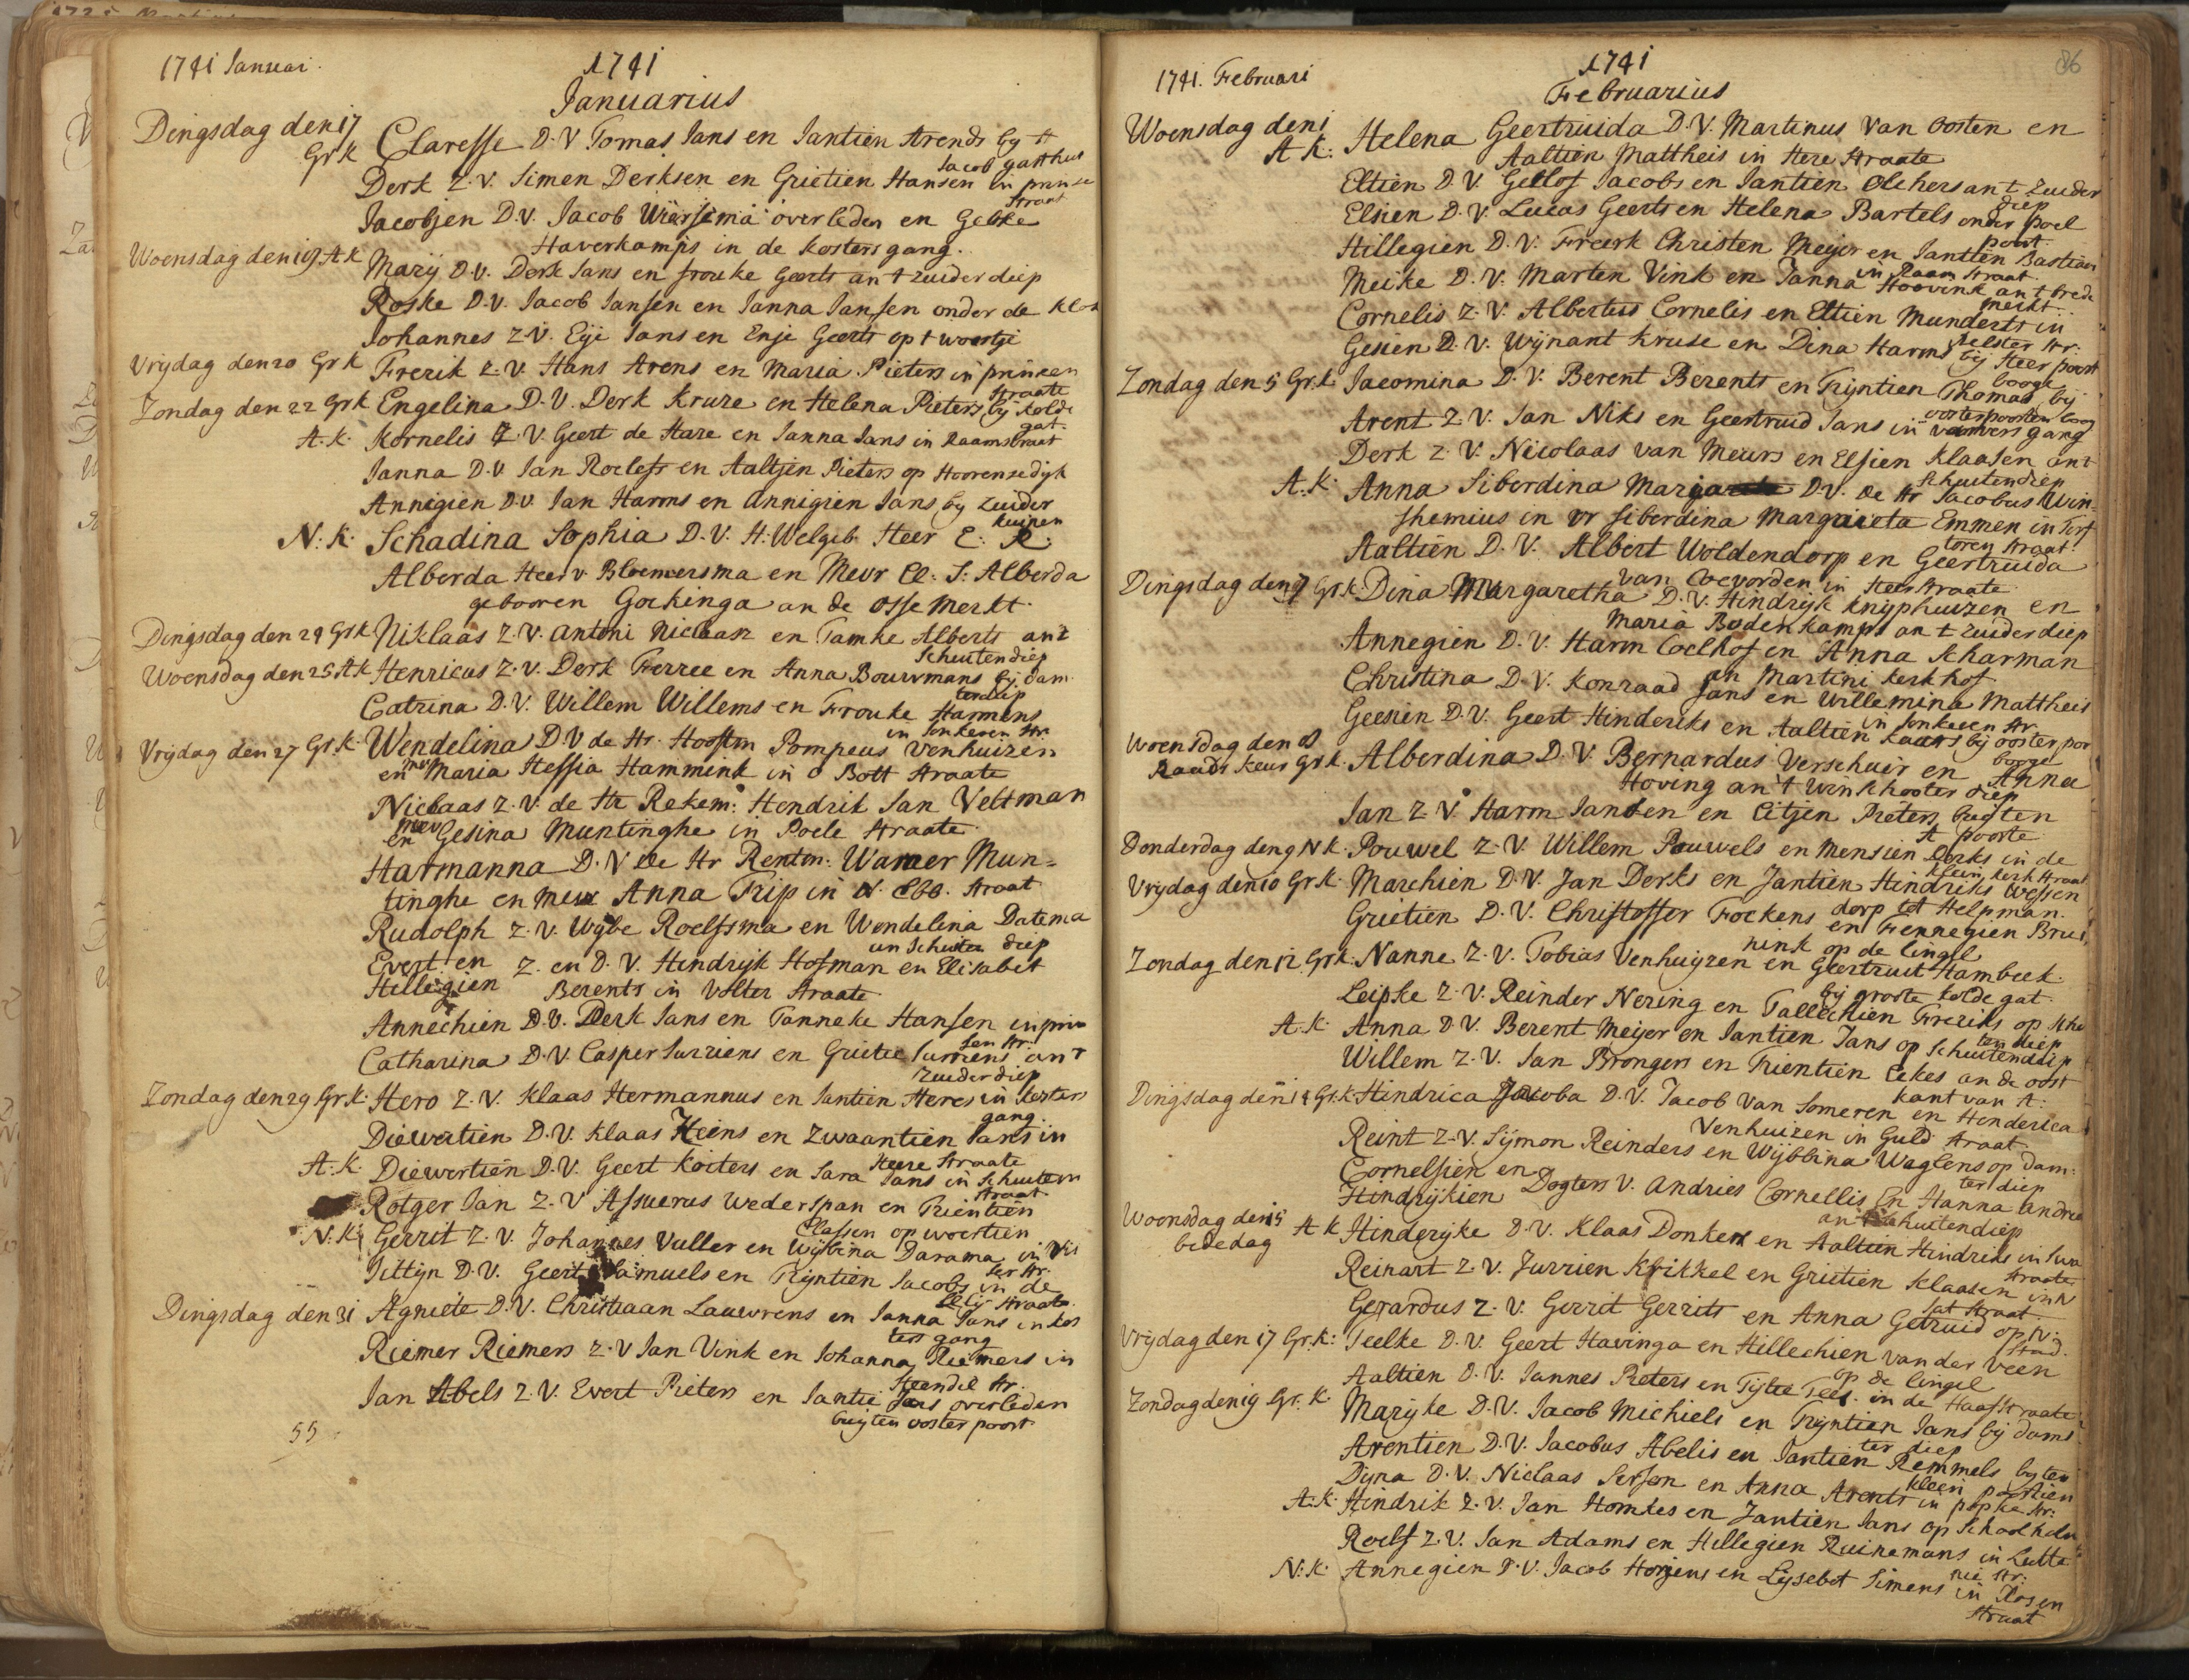 1741 Januari.
1741
Januarius
Dingsdag den 17
Gr K Claresse D.V Tomas Jans en Jantien Arends by
Jacob gasthus
Derk Z.V. Simen Derksen en Grietien Hansen in prinse
straat
Jacobjen D.V. Jacob Wiersema overleden en Geeske
Haverkamps in de kosters gang.
Woensdag den 19 A K Marij D.V. Derk Jans en frouke Geerts an t zuider diep
Roske D.V. Jacob Jansen en Janna Jansen onder de klok
Johannes Z.V. Eije Jans en Enje Geerts op t woertje
Vrijdag den 20 Gr K Frerik Z.V. Hans Arens en Maria Pieters in princen
straate
Zondag den 22 Gr K Engelina D.V. Derk Kruze en Helena Pieters by kolde
gat.
A.K. Kornelis Z.V. Geert de Haze en Janna Jans in Raamstraet
Janna D.V. Jan Roelefs en Aaltjen Pieters op Hoorensedijk
Annigien D.V. Jan Harms en Annigien Jans by zuider
kuipen
N:K. Schadina Sophia D.V. H:Welgeb Heer E: R:
Alberda Heer v Bloemersma en Mevr El: S: Alberda
gebooren Gockinga an de Osse Merkt.
Dingsdag den 24 Gr K Niklaas Z.V. Antoni Niclaasz en Tamke Alberts ant
Schuitendiep
Woensdag den 25 A K Henricus Z.V. Derk Ferree en Anna Bouwmans bij dam
ter diep
Catrina D.V. Willem Willems en Frouke Harmens
in Jonkeren str.
Vrijdag den 27 Gr.K. Wendelina D V de Hr. Hooftm Pompeus Venhuizen
en mevr Maria Hessia Hammink in o Bott straate
Niclaas Z.V. de Hr Rekem: Hendrik Jan Veltman
en mevr Gesina Muntinghe in Poele straate.
Harmanna D.V de Hr Rentm: Warner Mun=
tinghe en mevr Anna Trip in N. Ebb. straat
Rudolph Z.V. Wybe Roelfsma en Wendelina Datema
an Schuiten diep
Evert en Z. en D.V. Hendrijk Hofman en Elisabet
Hillegien Berents in Volter straate.
Annechien D.V. Derk Jans en Tanneke Hansen in prin
sen str.
Catharina D.V. Casper Jurriens en Grietie Jurriens an t
zuider diep
Zondag den 29 Gr.K. Hero Z.V. Klaas Hermannus en Jantien Heres in kosters
gang.
Diewertien D.V. Klaas Heins en Zwaantien Jans in
Heere straate
A.K. Diewertien D.V. Geert Koiters en Sara Jans in Schuiten
straat
Rotger Jan Z.V Assuerus Wederspan en Trientien
Classen op woertien
N.K. Gerrit Z.V. Johannes Vuller en Wijbina Darama in Vis
ser str.
Jittijn D.V. Geert Samuels en Trijntien Jacobs in de
Lelij straate.
Dingsdag den 31 Agniete D.V. Christiaan Lauwrens en Janna Jans in kos
ters gang
Riemer Riemers Z.V Jan Vink en Johanna Riemers in
Steendil str.
Jan Abels Z.V. Evert Pieters en Jantie Jans overleden
buyten ooster poort.
55
1741. Februari
1741
86
Februarius
Woensdag den 1
A K: Helena Geertruida D.V. Martinus van Oosten en
Aaltien Mattheis in Here straate
Eltien D.V. Geelof Jacobs en Jantien Olchers an t zuider
diep
Elsien D.V. Lucas Geerts en Helena Bartels onder poel
poort.
Hillegien D.V. Freerk Christen Meijer en Jantien Bastian
in Raam straat.
Meike D.V. Marten Vink en Janna Hoovink an t brede
merkt.
Cornelis Z.V. Albertus Cornelis en Eltien Munderts in
pelster str.
Gesien D.V. Wijnant Kruse en Dina Harms bij Heer poort
booge
Zondag den 5 Gr.K. Jacomina D.V. Berent Berents en Trijntien Thomas bij
oosterpoorten boog
Arent Z.V. Jan Niks en Geertruid Jans in vanvers gang
Derk Z.V. Nicolaas van Meurs en Elsien Klaasen an t
schuitendiep
A.K. Anna Siberdina D.V. de Hr Jacobus Win=
shemius en vr siberdina Margrieta Emmen in Torf
toren straat.
Aaltien D.V. Albert Woldendorp en Geertruida
van Coevorden in Heer straate
Dingsdag den 7 Gr.K. Dina Margaretha D.V. Hindrijk Knijphuizen en
Maria Bodenkamps an t zuider diep
Annegien D.V. Harm Coelhof en Anna Scharman
an Martini kerkhof
Christina D.V. Konraad Jans en Willemina Mattheis
in Jonkeren str.
Geesien D.V. Geert Hinderiks en Aaltien Kaars bij ooster por
booge
Woensdag den 8
Raads keur Gr K. Alberdina D.V. Bernardus Verschuir en Anna
Hoving an 't winschooter diep
Jan Z.V. Harm Jansen en Eitjen Pieters buyten
A poorte
Donderdag den 9 N K. Pouwel Z.V. Willem Pouwels en Mensien Derks in de
kleen kerk straat
Vrijdag den 10 Gr K. Marchien D.V. Jan Derks en Jantien Hindriks Wessen
dorp tot Helpman.
Grietien D.V. Christoffer Fockens en Fennegien Brui
nink op de Cingel
Zondag den 12 Gr.K. Nanne Z.V. Tobias Venhuyzen en Geertruit Hambeek.
bij groote kolde gat
Leipke Z.V. Reinder Nering en Tallechien Freriks op schu
ten diep
A.K. Anna D.V. Berent Meijer en Jantien Jans op Schuitendiep
Willem Z.V. Jan Brongers en Trientien Eekes an de oost
kant van A:
Dingsdag den 14 Gr.K. Hindrica Jacoba D.V. Jacob Van Someren en Henderica
Venhuizen in Guld straat
Reint Z.V. Sijmon Reinders en Wijbbina Waglens op Dam:
ter diep
Cornelsien en
Hindrijkien Dogters V. Andries Cornellis en Hanna Andrea
an Schuitendiep
Woensdag den 15
bededag A K Hinderijke D.V. Klaas Donker en Aaltien Hindriks in Swa
straate
Reinart Z.V. Jurrien Krikkel en Grietien Klaasen in N
Jat straat
Gerardus Z.V. Gerrit Gerrits en Anna Getruid op N.
Stad.
Vrijdag den 17 Gr.K: Jeelke D.V. Geert Havinga en Hillechien van der Veen
op de Cingel
Aaltien D.V. Jannes Pieters en Tijtie Tees. in de Haafstraate
Zondag den 19 Gr. K. Marijke D.V. Jacob Michiels en Trijntien Jans bij dams
ter diep
Arentien D.V. Jacobus Abelis en Jantien Remmels byten
kleen poortien
Dijna D.V. Niclaas Serson en Anna Arents in popke str:
A.K. Hindrik Z.V. Jan Homkes en Jantien Jans op Schoolholm
Roelf Z.V. Jan Adams en Hillegien Ruinemans in Lutte
nie str:
N.K. Annegien D.V. Jacob Horjens en Lijsebet Simens in Rosen
straat